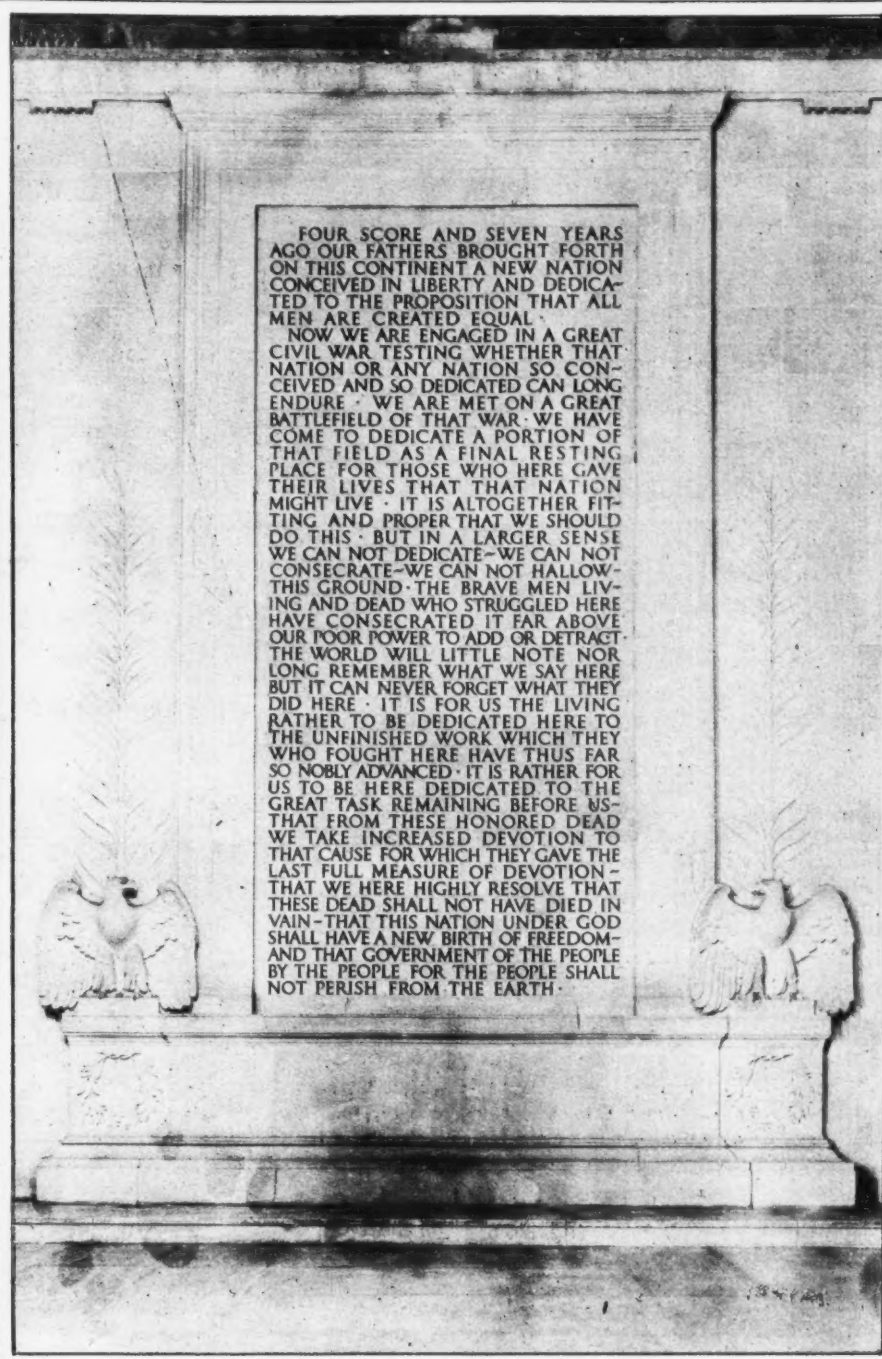 FOUR SCORE AND SEVEN YEARS
AGO OUR FATHERS BROUGHT FORTH
ON THIS CONTINENT A NEW NATION
CONCEIVED IN LIBERTY AND DEDICA-
TED TO THE PROPOSITION THAT ALL
MEN ARE CREATED EQUAL ·
NOW WE ARE ENGAGED IN A GREAT
CIVIL WAR TESTING WHETHER THAT
NATION OR ANY NATION SO CON-
CEIVED AND SO DEDICATED CAN LONG
ENDURE · WE ARE MET ON A GREAT
BATTLEFIELD OF THAT WAR · WE HAVE
COME TO DEDICATE A PORTION OF
THAT FIELD AS A FINAL RESTING
PLACE FOR THOSE WHO HERE GAVE
THEIR LIVES THAT THAT NATION
MIGHT LIVE · IT IS ALTOGETHER FIT-
TING AND PROPER THAT WE SHOULD
DO THIS · BUT IN A LARGER SENSE
WE CAN NOT DEDICATE-WE CAN NOT
CONSECRATE-WE CAN NOT HALLOW-
THIS GROUND · THE BRAVE MEN LIV-
ING AND DEAD WHO STRUGGLED HERE
HAVE CONSECRATED IT FAR ABOVE
OUR POOR POWER TO ADD OR DETRACT ·
THE WORLD WILL LITTLE NOTE NOR
LONG REMEMBER WHAT WE SAY HERE
BUT IT CAN NEVER FORGET WHAT THEY
DID HERE · IT IS FOR US THE LIVING
RATHER TO BE DEDICATED HERE TO
THE UNFINISHED WORK WHICH THEY
WHO FOUGHT HERE HAVE THUS FAR
SO NOBLY ADVANCED · IT IS RATHER FOR
US TO BE HERE DEDICATED TO THE
GREAT TASK REMAINING BEFORE US-
THAT FROM THESE HONORED DEAD
WE TAKE INCREASED DEVOTION TO
THAT CAUSE FOR WHICH THEY GAVE THE
LAST FULL MEASURE OF DEVOTION -
THAT WE HERE HIGHLY RESOLVE THAT
THESE DEAD SHALL NOT HAVE DIED IN
VAIN-THAT THIS NATION UNDER GOD
SHALL HAVE A NEW BIRTH OF FREEDOM-
AND THAT GOVERNMENT OF THE PEOPLE
BY THE PEOPLE FOR THE PEOPLE SHALL
NOT PERISH FROM THE EARTH ·